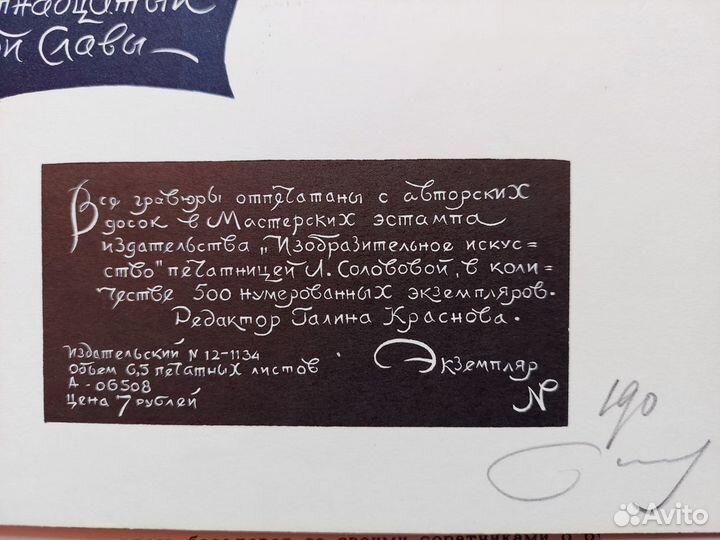 надцатый
ой Славы
Все гравюры отпечатаны с авторских
досок в Мастерских эстампа
издательства „Изобразительное искус=
ство" печатницей И. Солововой, в коли=
честве 500 нумерованных экземпляров.
Редактор Галина Краснова.
Издательский N 12-1134
Объем 6,5 печатных листов
А-06508
Цена 7 рублей
Экземпляр
N 190
Avito